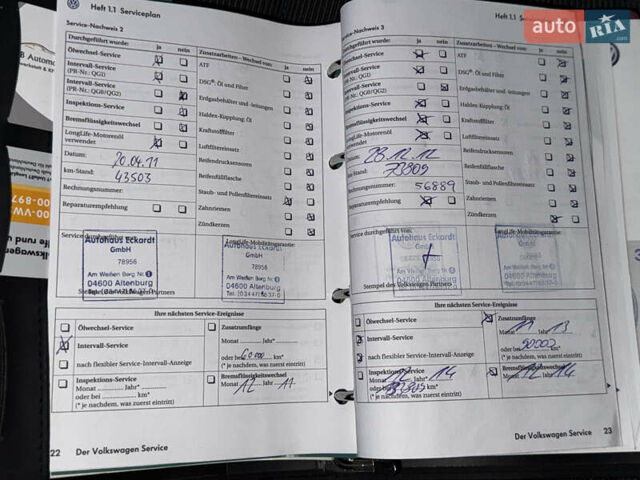 Heft 1.1 Serviceplan
Service-Nachweis 2
Durchgeführt wurde: ja nein
Ölwechsel-Service
Intervall-Service
(PR-Nr.: QG1)
Intervall-Service
(PR-Nr.: QG0/QG2)
Inspektions-Service
Bremsflüssigkeitswechsel
LongLife-Motorenöl
verwendet
Datum: 20.04.11
km-Stand: 43503
Rechnungsnummer:
Reparaturempfehlung
Zusatzarbeiten – Wechsel von: ja nein
ATF
DSG®: Öl und Filter
Erdgasbehälter und -leitungen
Haldex-Kupplung Öl
Kraftstofffilter
Luftfiltereinsatz
Reifendruckssensoren
Reifenfüllflasche
Staub- und Pollenfiltereinsatz
Zahnriemen
Zündkerzen
Service durchgeführt von:
LongLife-Mobilitätsgarantie:
Autohaus Eckardt
GmbH
78956
Am Weißen Berg Nr.
04600 Altenburg
Autohaus Eckardt
GmbH
78956
Am Weißen Berg Nr.
04600 Altenburg
Ihre nächsten Service-Ereignisse
Ölwechsel-Service
Intervall-Service
nach flexibler Service-Intervall-Anzeige
Inspektions-Service
Monat Jahr*
oder bei km*
(* je nachdem, was zuerst eintritt)
Zusatzumfänge
Monat Jahr*
oder bei 60000 km*
(* je nachdem, was zuerst eintritt)
Bremsflüssigkeitswechsel
Monat 12 Jahr 11
22 Der Volkswagen Service
Heft 1.1 Se
Service-Nachweis 3
Durchgeführt wurde: ja nein
Ölwechsel-Service
Intervall-Service
(PR-Nr.: QG1)
Intervall-Service
(PR-Nr.: QG0/QG2)
Inspektions-Service
Bremsflüssigkeitswechsel
LongLife-Motorenöl
verwendet
Datum: 28.12.12
km-Stand: 73909
Rechnungsnummer: 56889
Reparaturempfehlung
Zusatzarbeiten – Wechsel von: ja nein
ATF
DSG®: Öl und Filter
Erdgasbehälter und -leitungen
Haldex-Kupplung Öl
Kraftstofffilter
Luftfiltereinsatz
Reifendrucksensoren
Reifenfüllflasche
Staub- und Pollenfiltereinsatz
Zahnriemen
Zündkerzen
Service durchgeführt von:
LongLife-Mobilitätsgarantie:
Autohaus Eckardt
GmbH
04600 Altenburg
Stempel des Volkswagen Partners
Ihre nächsten Service-Ereignisse
Ölwechsel-Service
Intervall-Service
nach flexibler Service-Intervall-Anzeige
Inspektions-Service
Monat Jahr 14
(* je nachdem, was zuerst eintritt)
Zusatzumfänge
Monat 11 Jahr 13
oder bei km*
(* je nachdem, was zuerst eintritt)
Bremsflüssigkeitswechsel
Monat 12 Jahr 14
Der Volkswagen Service 23
auto RIA.com